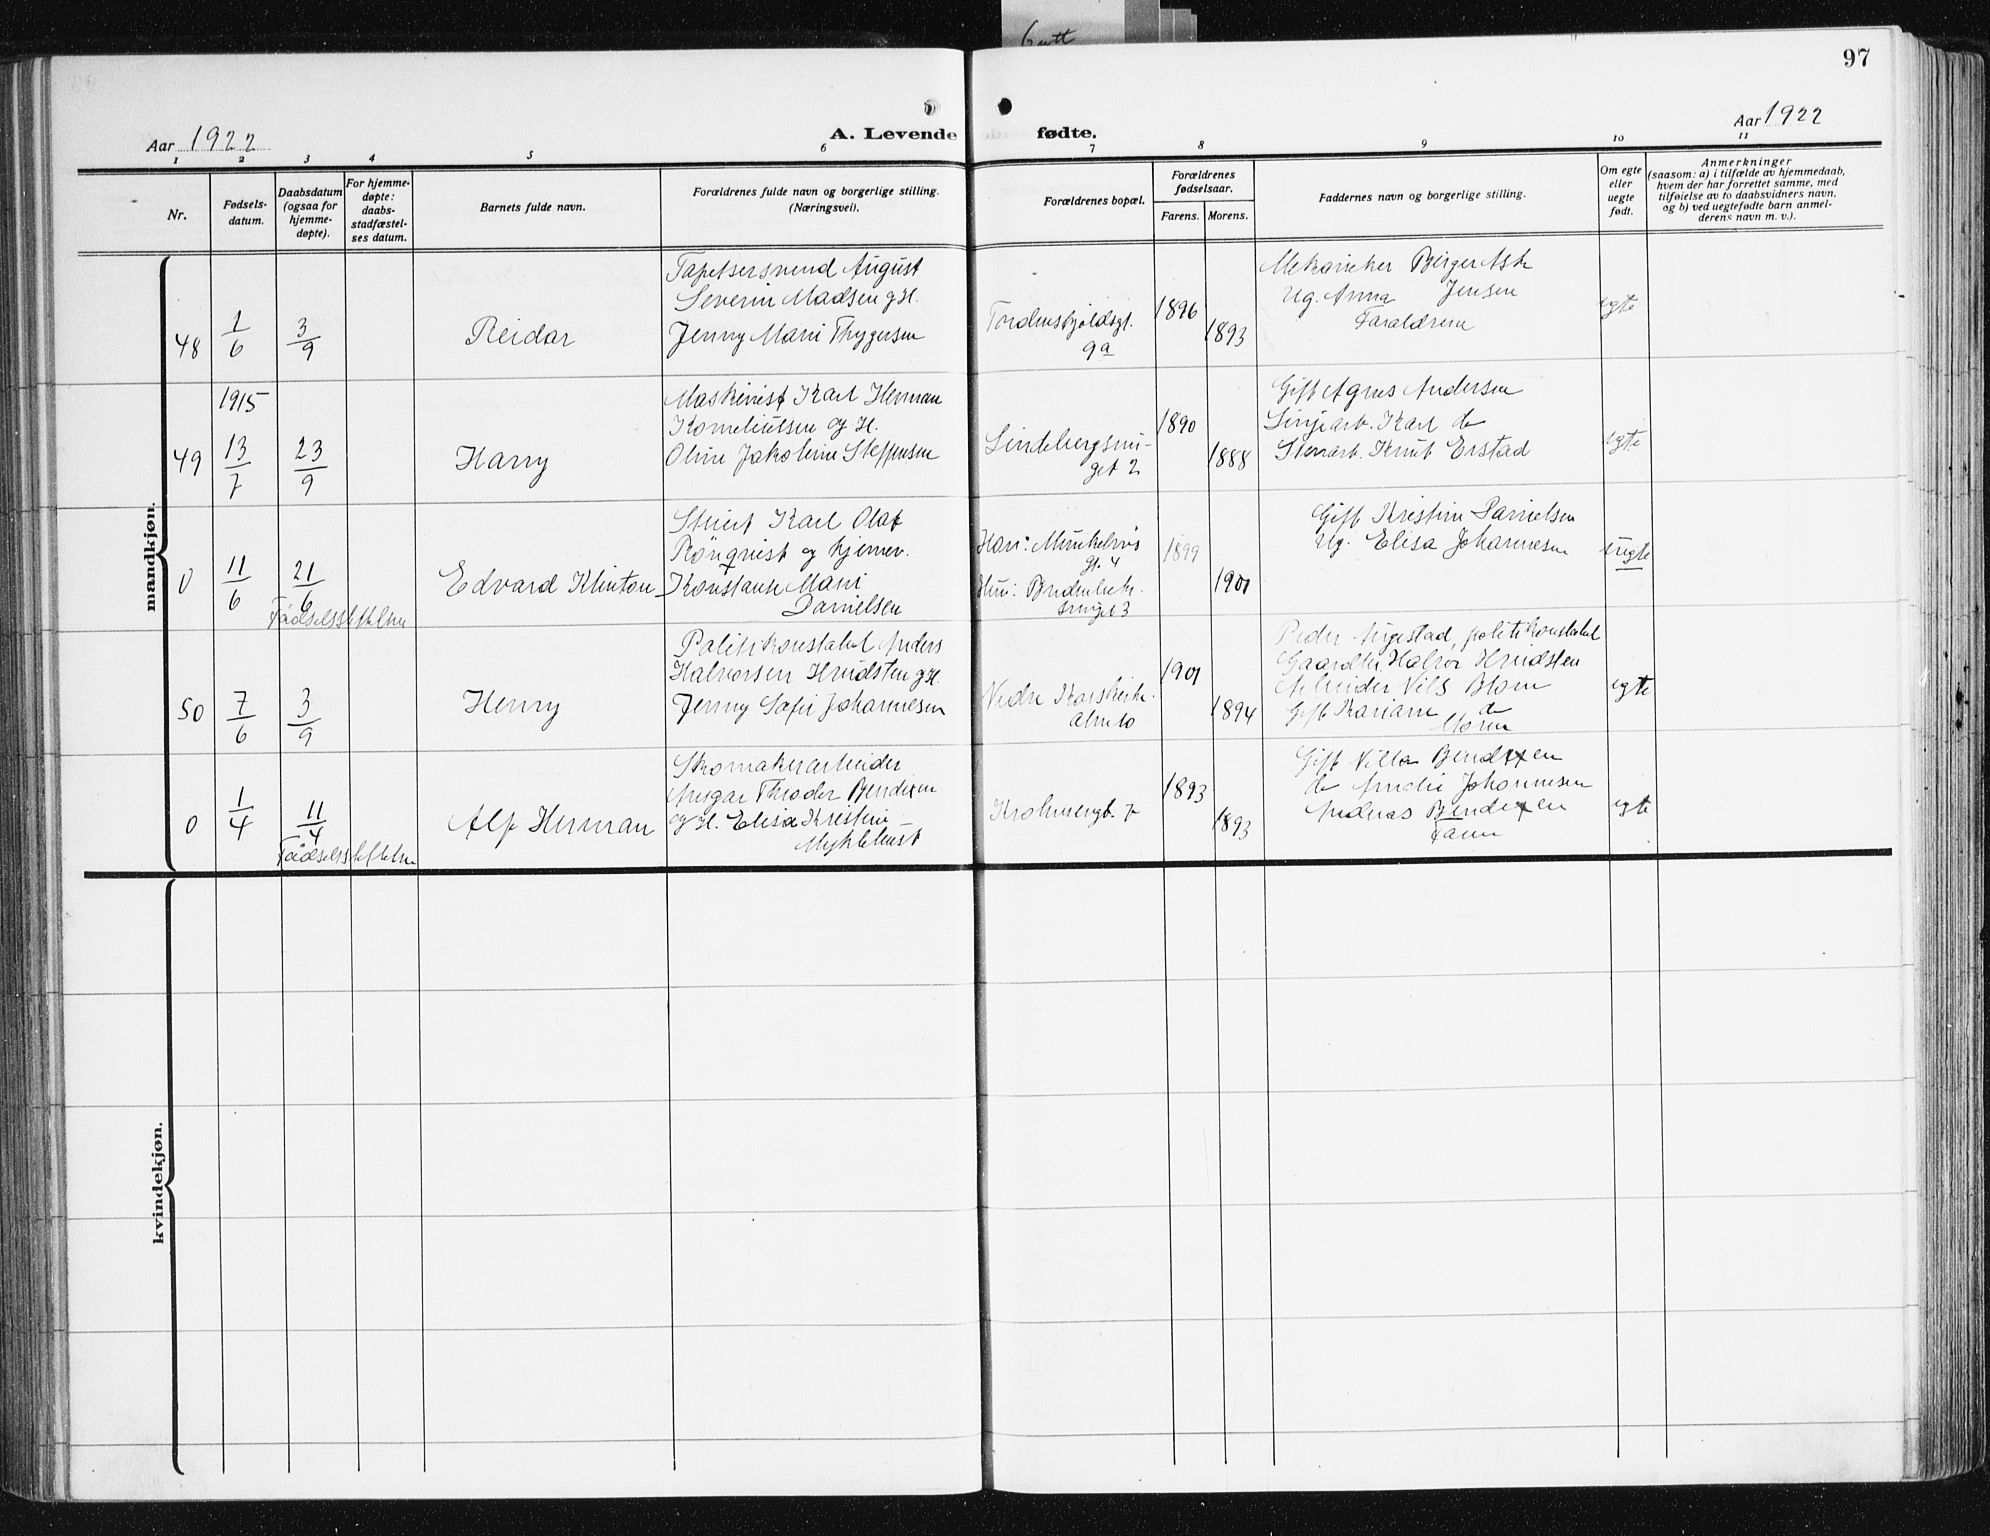 Gutt
97
Aar 1922
A. Levende fødte.
Aar 1922
1 2 3 4 5 6 7 8 9 10 11
Nr.
Fødsels-
datum.
Daabsdatum
(ogsaa for
hjemme-
døpte).
For hjemme-
døpte:
daabs-
stadfæstel-
ses datum.
Barnets fulde navn.
Forældrenes fulde navn og borgerlige stilling.
(Næringsvei).
Forældrenes bopæl.
Forældrenes
fødselsaar.
Farens. Morens.
Faddernes navn og borgerlige stilling.
Om egte
eller
uegte
født.
Anmerkninger
(saasom: a) i tilfælde av hjemmedaab,
hvem der har forrettet samme, med
tilføielse av to daabsvidners navn,
og b) ved uegtefødte barn anmel-
derens navn m. v.).
mandkjøn.
48
1/6
3/9
Reidar
Tapetsersvend August
Severin Madsen og H.
Jenny Marie Thygersen
Tordenskjoldsgt.
9a
1896
1893
Mekaniker Birger Ask
Ug. Anna Jensen
Faraldrene
egte
49
1915
13/7
23/9
Harry
Maskinist Karl Herman
Korneliutsen og H.
Oline Jakobine Steffensen
1890
1888
Gift Agnes Andersen
Karl do
Stenarb. Knut Erstad
egte
0
11/6
21/6
Fødselsseddel
Edvard Klinton
Stuert Karl Olaf
Rönqvist og hjemev.
Konstanse Marie
Danielsen
Han: Munkebrös
gt. 4
Hun:
1899
1901
Gift Kristine Danielsen
Ug. Elisa Johannesen
uegte
50
7/6
3/9
Henry
Politikonstabel Anders
Halvorsen Hrudsten og H.
Jenny Sofie Johannesen
Nedre Korskirke
alm 10
1901
1894
Peder politikonstabel
Gaardbr. Halvor Hrudsten
Arbeider Nils Blom
Gift Mariane do
Moren
egte
0
1/4
11/4
Alf Herman
Skomakerarbeider
Ansgar Theodor Bendixen
og H. Elisa Kristine
Myklebust
Krohnengt. 7
1893
1893
Gift Villa Bendixen
do Amelie Johannesen
Andreas Bendixen
Faren
egte
kvindekjøn.